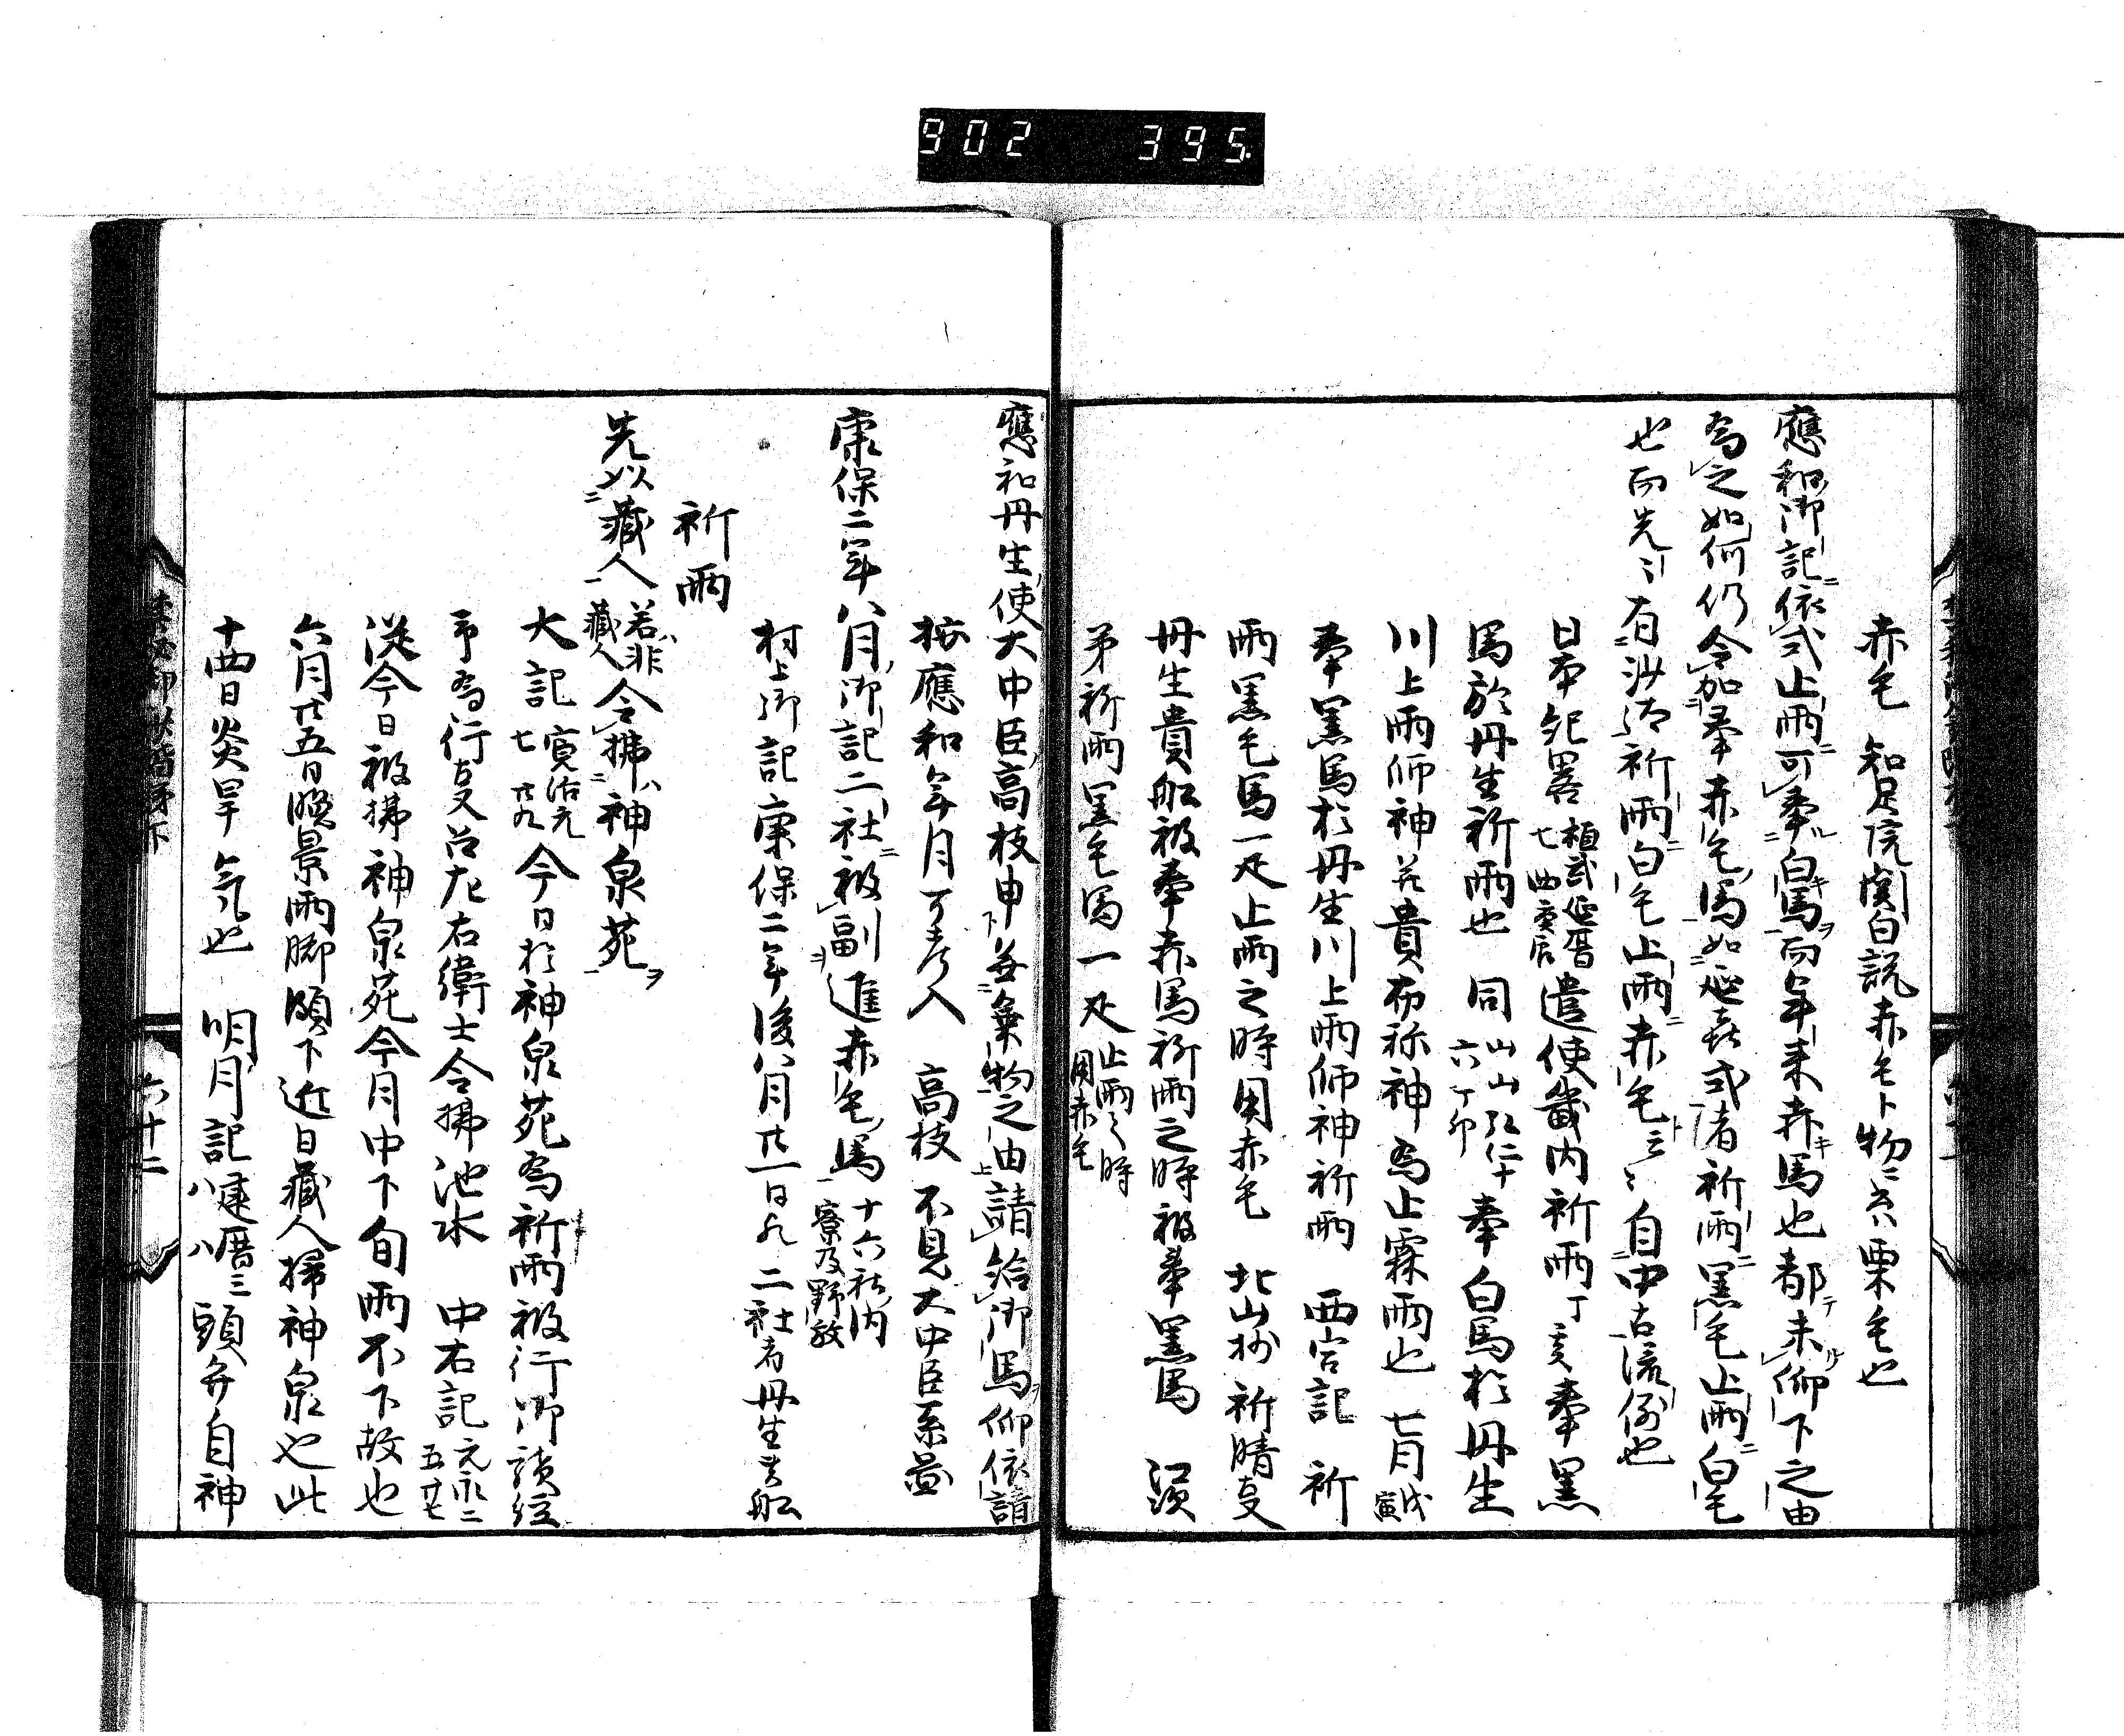 902 395.
赤毛 知足院関白説赤毛ト物ニ云栗毛也
應和御記依式止雨ニ可奉白馬ヲ而年来赤キ馬也都テ未仰下之由
為之如何仍令加奉赤毛馬如延喜式者祈雨ニ黒毛止雨ニ白毛
也而先〻有沙汰祈雨ニ白毛止雨ニ赤毛云〻自中古流例也
日本紀畧 桓武延暦七四庚辰 遣使畿内祈雨丁亥奉黒
馬於丹生祈雨也 同 山山弘仁十六丁卯 奉白馬於丹生
川上雨師神并貴布祢神為止霖雨也 七月戊寅
奉黒馬於丹生川上雨師神祈雨 西宮記 祈
雨黒毛馬一疋止雨之時用赤毛 北山抄 祈晴叓
丹生貴舩被奉赤馬祈雨之時被奉黒馬 江次
第祈雨黒毛馬一疋 止雨之時用赤毛
應和丹生使大中臣高枝申無乗物之由請給御馬仰依請
按應和年月可考入 高枝 不見大中臣系圖
康保二年八月御記二社ニ被副進赤毛馬 十六社内寮及野放
村上御記康保二年後八月廿一日 二社者丹生貴舩
祈雨
先以蔵人 若非蔵人 令拂神泉苑ヲ
大記 寛治元七廿九 今日於神泉苑為祈雨被行御読経
予為行叓召左右衛士令拂池水 中右記 元永二五廿七
從今日被拂神泉苑今月中下旬雨不下故也
六月廿五日晩景雨脚頗下近日蔵人掃神泉也此
十四日炎旱気也 明月記 建暦三八八 頭弁自神
六十二